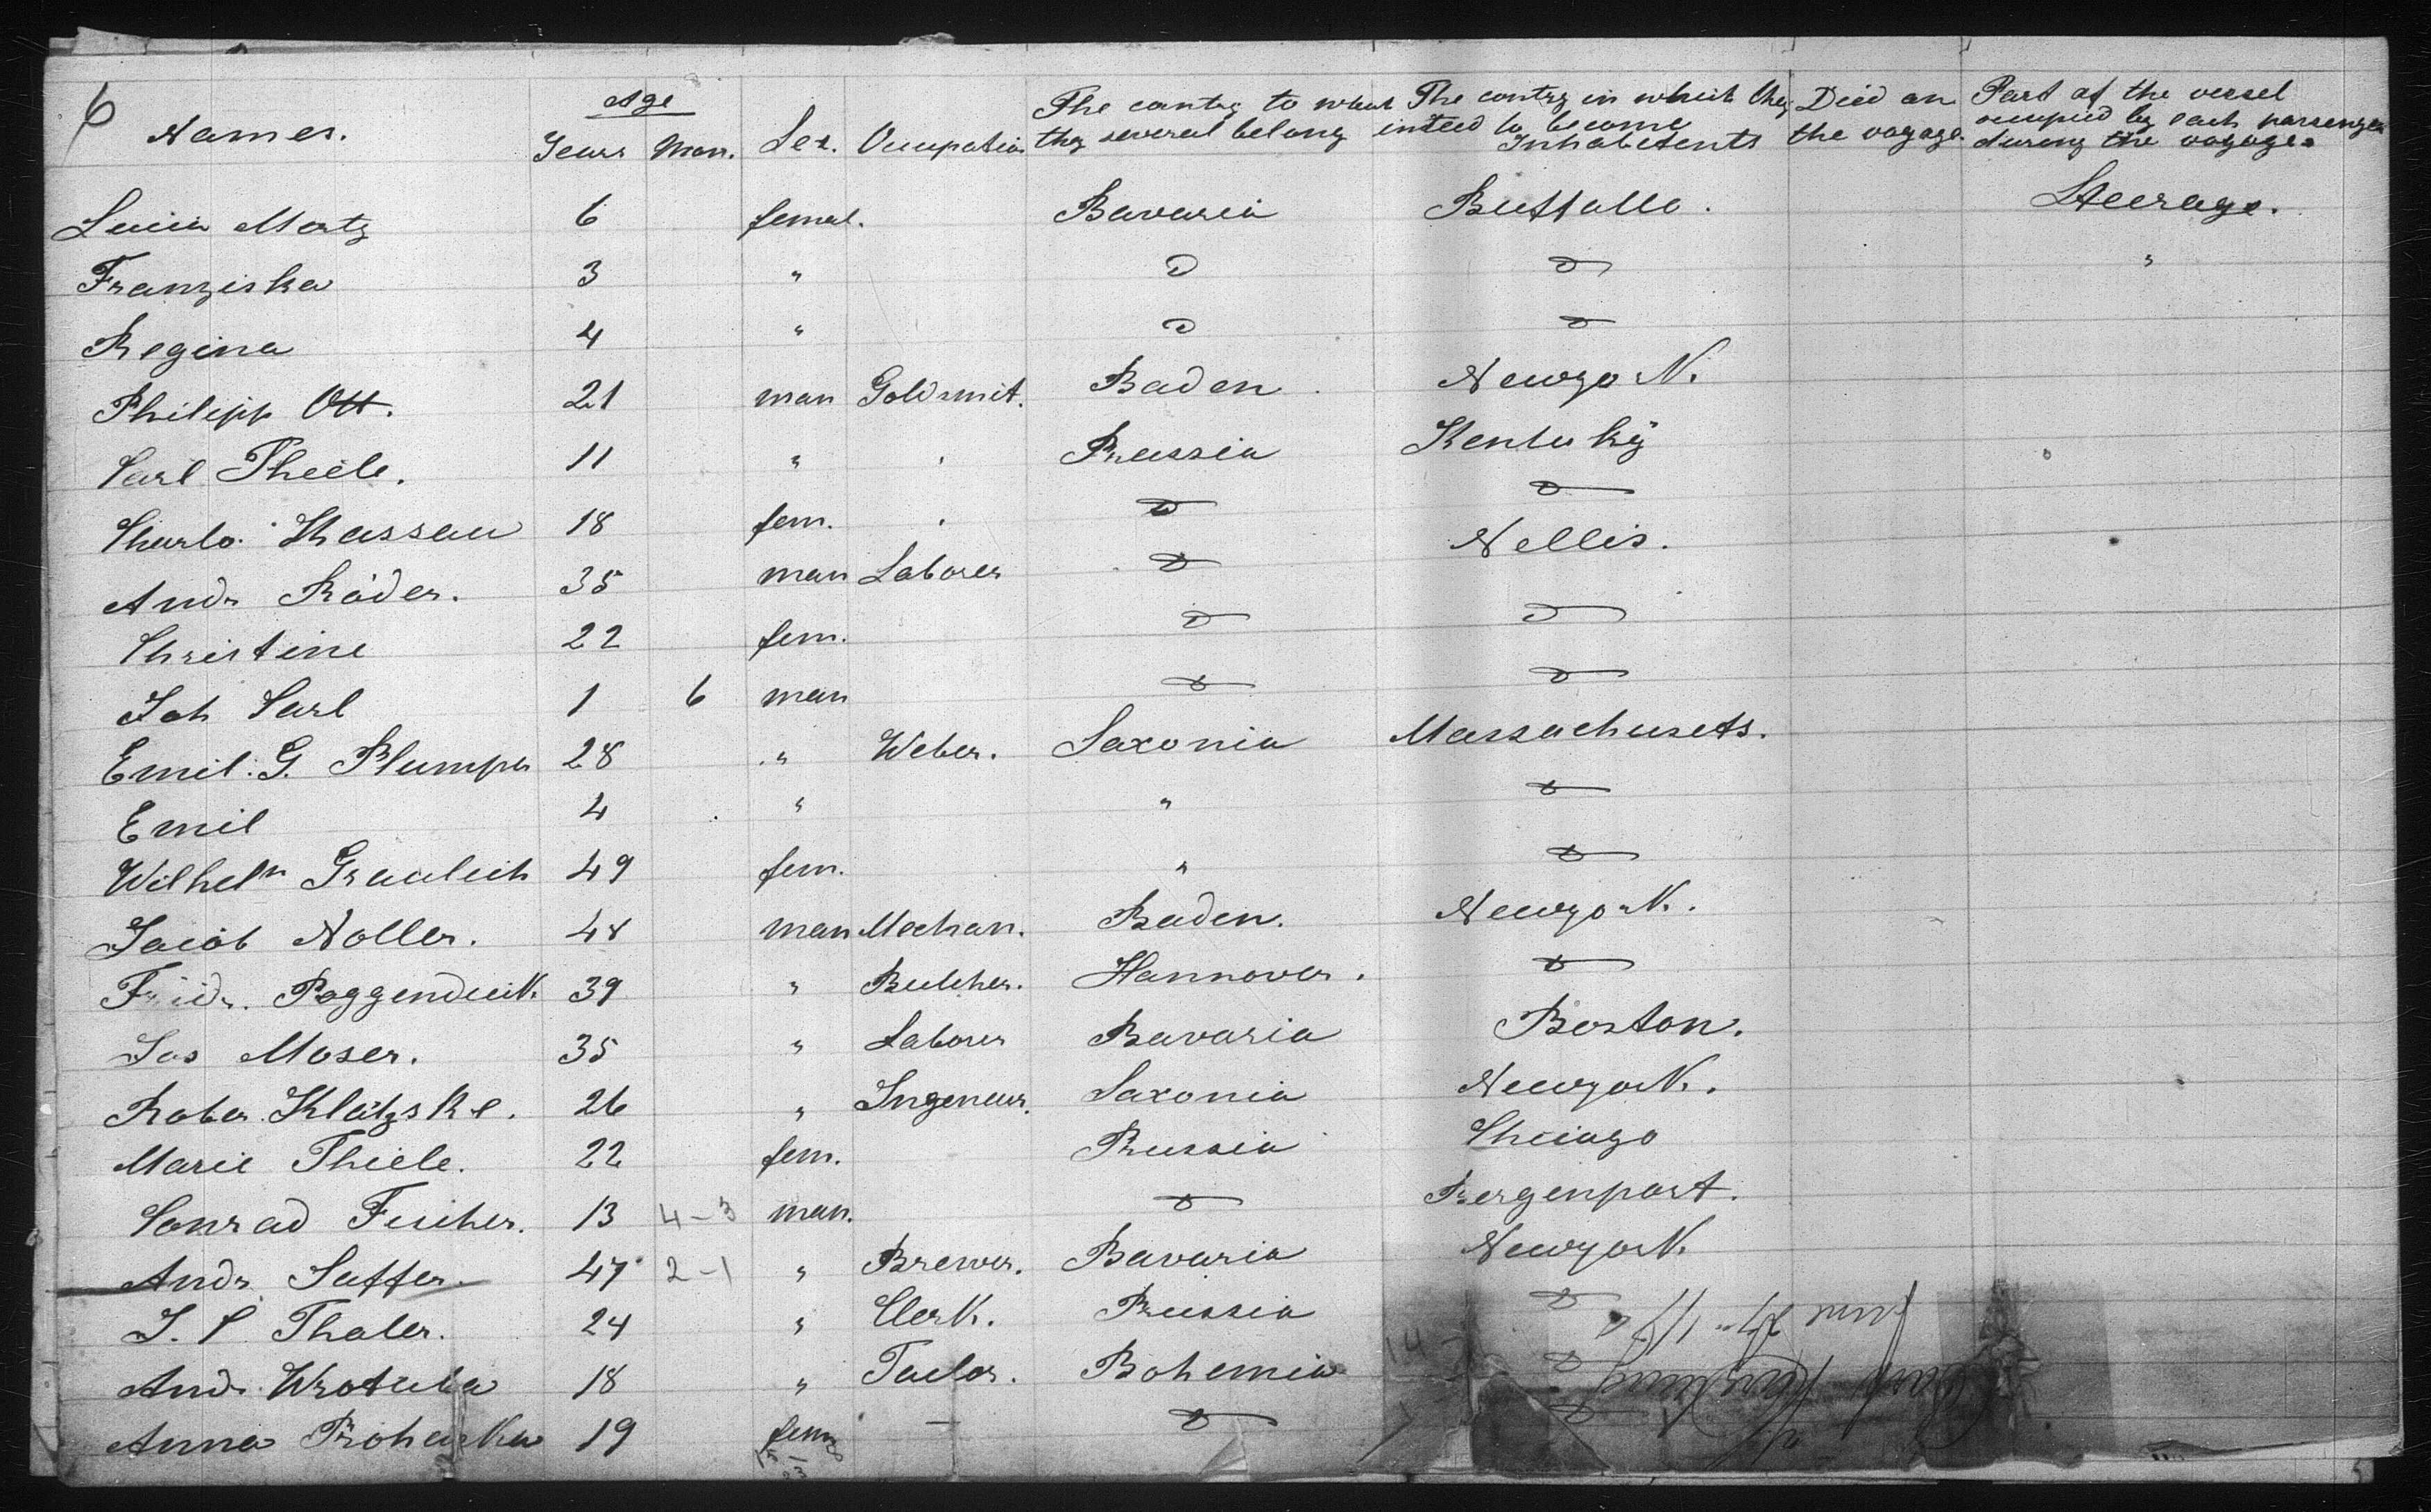 6
Names. Age Sex. Occupation The contry to which they several belong The contry in which they inteed to become Inhabitents Died on the voyage. Part of the vessel occupied by each passenger during the voyage.
Years Mon.
Lucia Martz 6 femal. Bavaria Buffallo. Steerage.
Franziska 3 " D D "
Regina 4 " D D
Philipp Ott. 21 man Goldsmit. Baden Newyork.
Carl Theile. 11 " Prussia Kentuky
Charlo. Stassau 18 fem. D D
Andr Röder. 35 man Laborer D Nellis.
Christine 22 fem. D D
Joh Carl 1 6 man D D
Emil. G. Plumper 28 " Weber. Saxonia Massachusets.
Emil 4 " " D
Wilhelm Graulich 49 fem. " D
Jacob Noller. 48 man Mechan. Baden. Newyork.
Fridr. Poggendieck. 39 " Butcher. Hannover. D
Jos Moser. 35 " Laborer Bavaria Boston.
Rober. Klätzske. 26 " Ingeneur. Saxonia Newyork.
Marie Thiele. 22 fem. Prussia Chicago
Conrad Fischer. 13 4-3 man. D Bergenport.
Andr. Saffer. 47 2-1 " Brewer. Bavaria Newyork
J. C. Thaler. 24 " Clerk. Prussia D
Andr. Wrotuba 18 " Taelor. Bohemia D
Anna Prohaska 19 fem — D D
14
June 27"